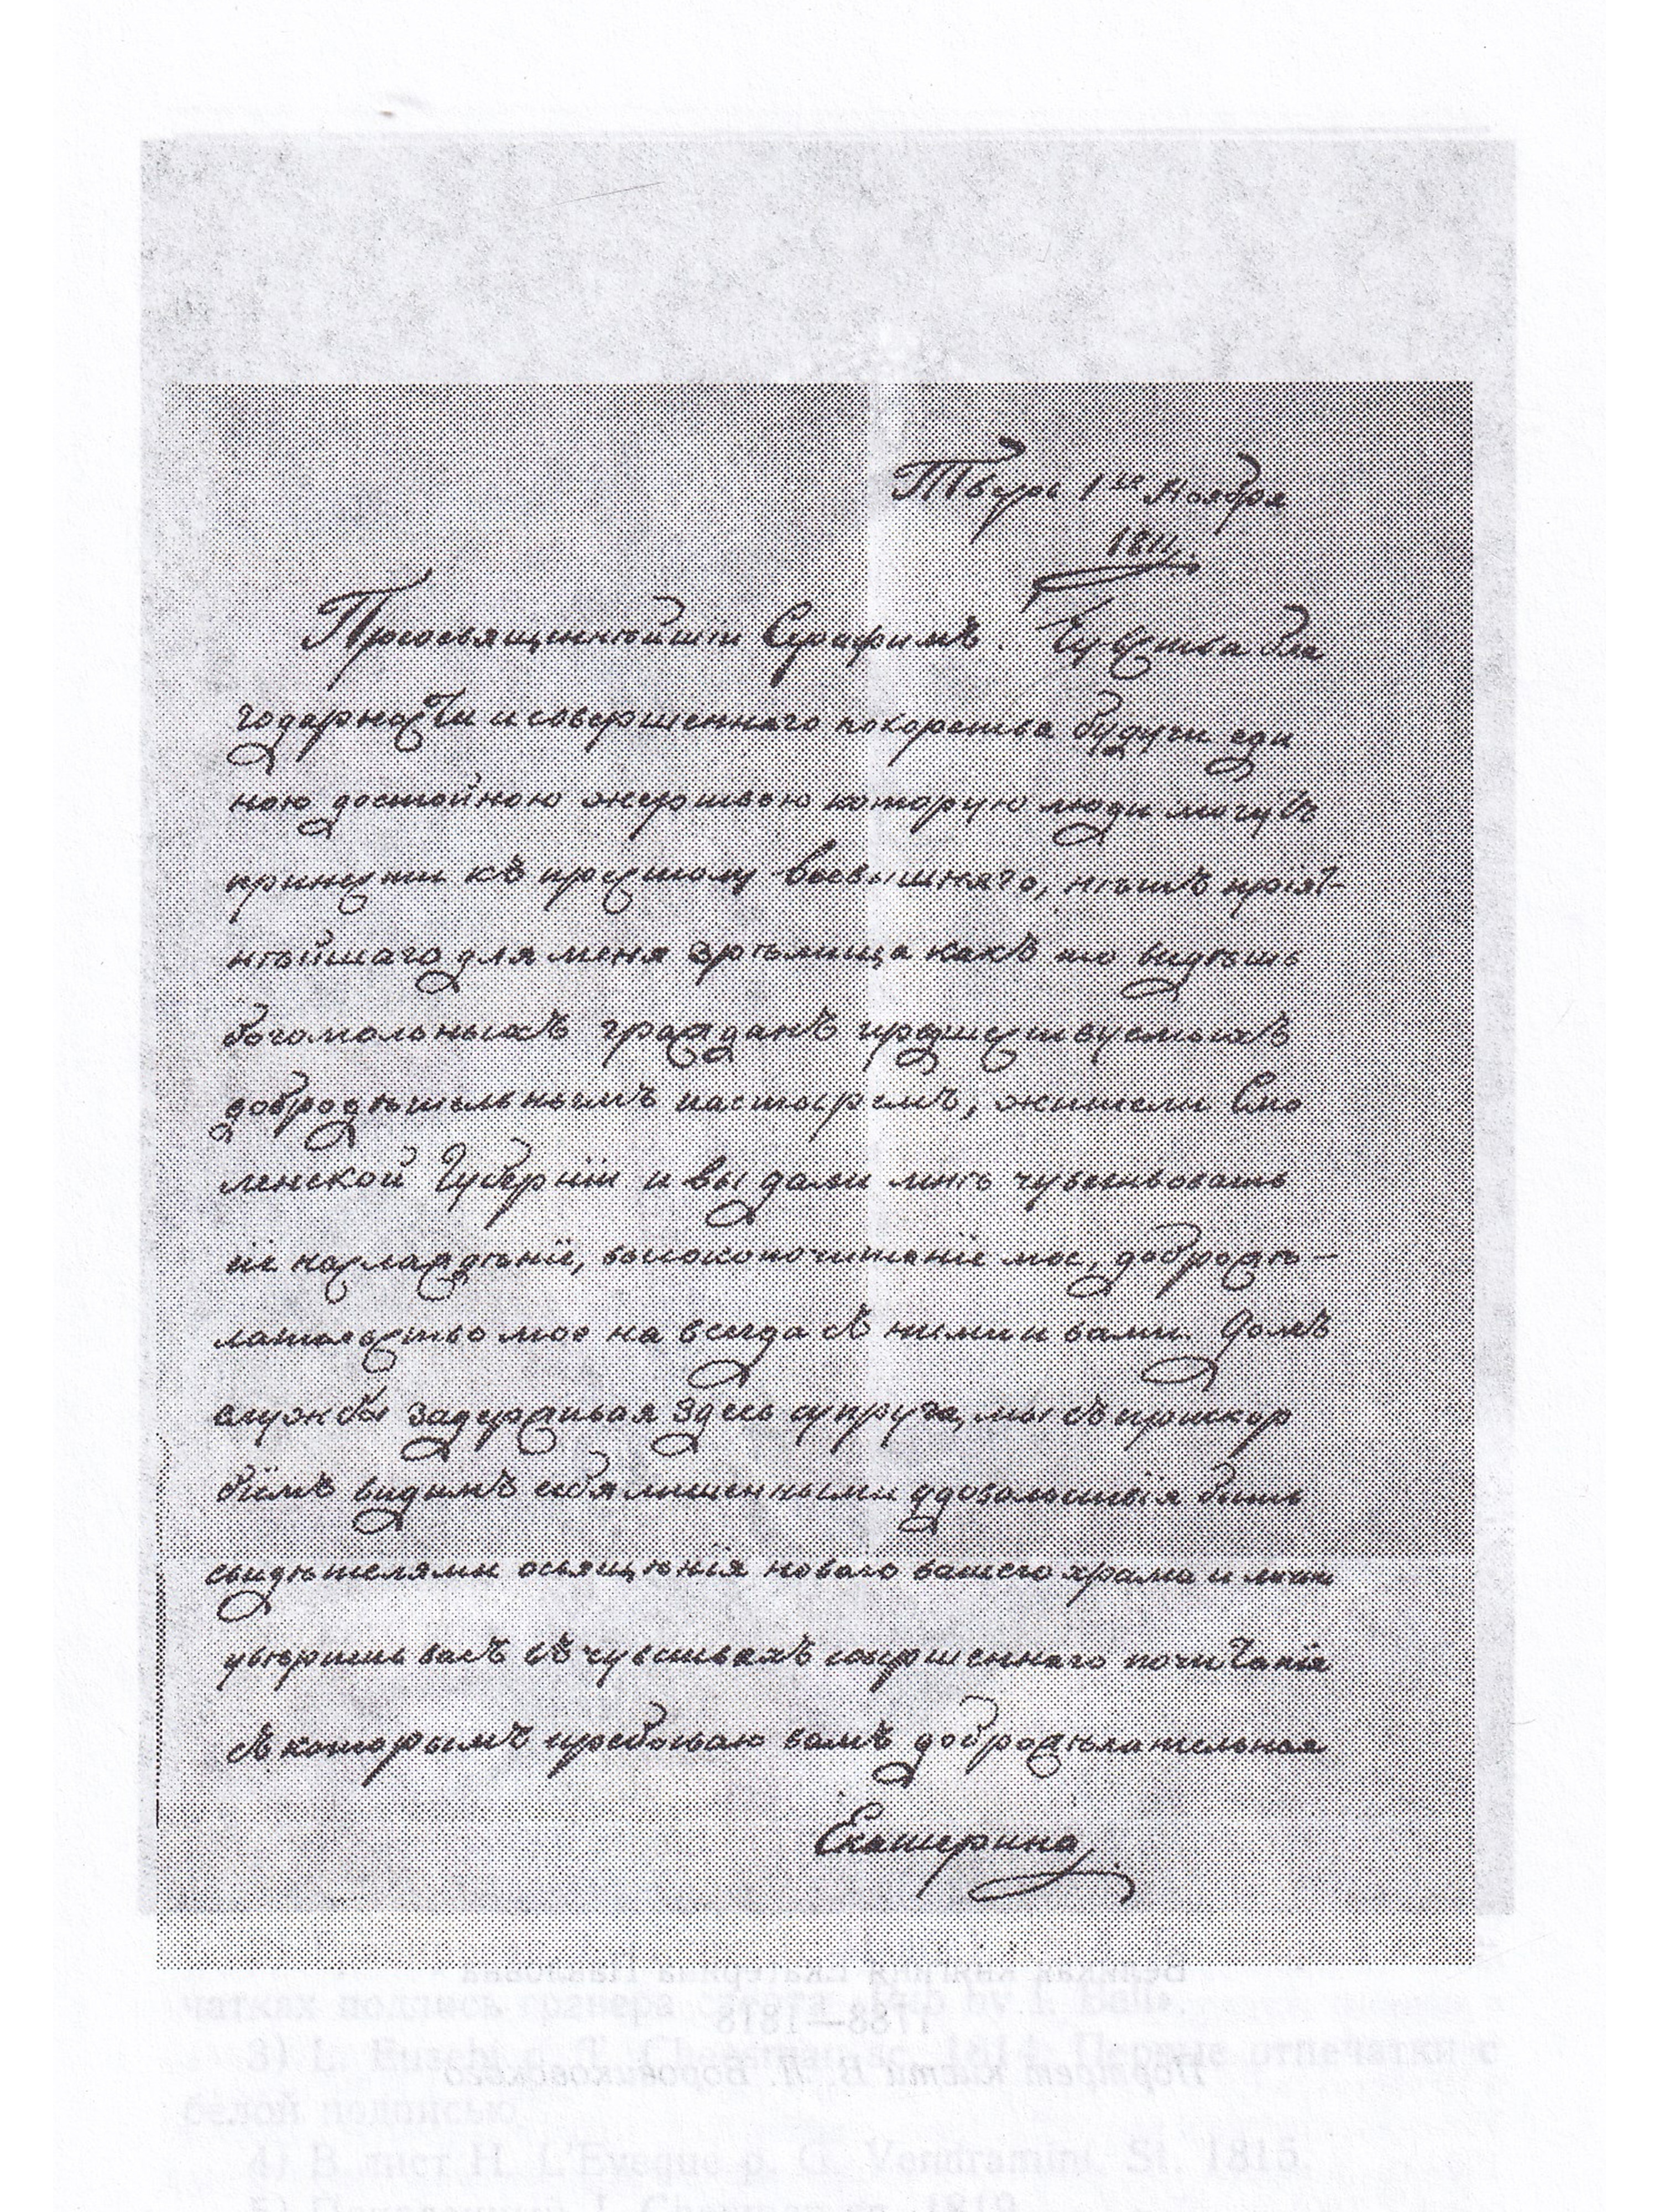 Тверь 1го Ноября
1811.
Преосвященнѣйшiй Серафимъ. Чувства бла
годарности и совершеннаго покорства будучи еди
ною достойною жертвою которую люди могутъ
принести къ престолу Всевышняго, нѣтъ прiят-
нѣйшаго для меня зрѣлища какъ то видѣть
богомольныхъ гражданъ предшествуемыхъ
добродѣтельнымъ пастыремъ, жители Смо
ленской Губернiи и вы дали мнѣ чувствовать
сiе наслажденiе, высокопочитанiе мое, доброже-
лательство мое на всегда съ ними и вами. Долгъ
службы задерживая здесь супруга, мы съ прискор
бiемъ видимъ себя лишенными удовольствiя быть
свидѣтелями освященiя новаго вашего храма и лично
увѣрить васъ въ чувствахъ совершеннаго почитанiя
съ которымъ пребываю вамъ доброжелательная
Екатерина
Великая княгиня Екатерина Павловна
1788—1818
Портрет кисти В. Л. Боровиковского
чатках подпись гравера
3) L. Buschi d. T. Cheesman sc. 1814. Первые отпечатки с
белой подписью.
4) В лист H. L'Eveque p. G. Vendramini. St. 1815.